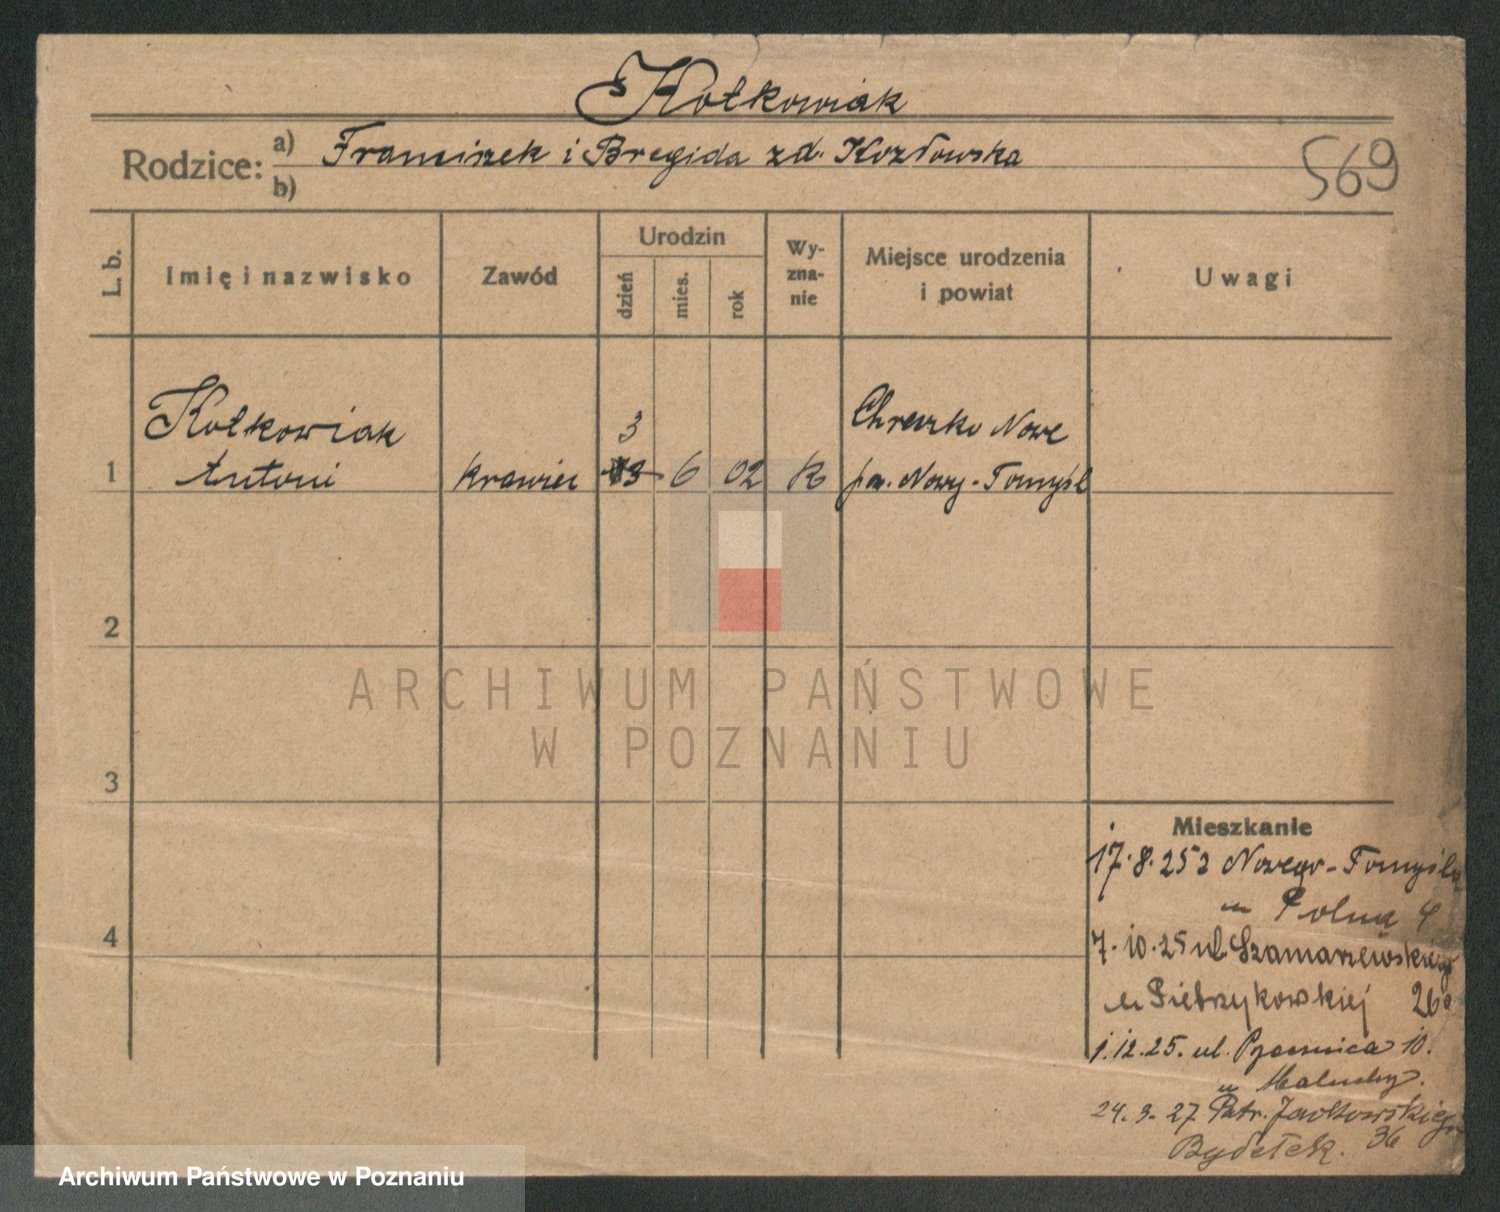 Kotkowiak
Rodzice: a) Franciszek i Bregida zd. Kozłowska
b)
569
L. b.
Imię i nazwisko
Zawód
Urodzin
dzień
mies.
rok
Wy-
zna-
nie
Miejsce urodzenia
i powiat
Uwagi
Kotkowiak
3
Nowe
1 Antoni krawiec 13 6 02 k pow. Nowy-Tomyśl
2
3
4
ARCHIWUM PAŃSTWOWE
W POZNANIU
Mieszkanie
17.8.25 z Nowego-Tomyśla
Polna 4
7.10.25 ul. Szamarzewskiego
u Pietrzykowskiej 26
1.12.25. ul. 10.
u
24.3.27 Patr. Jackowskiego
36
Archiwum Państwowe w Poznaniu